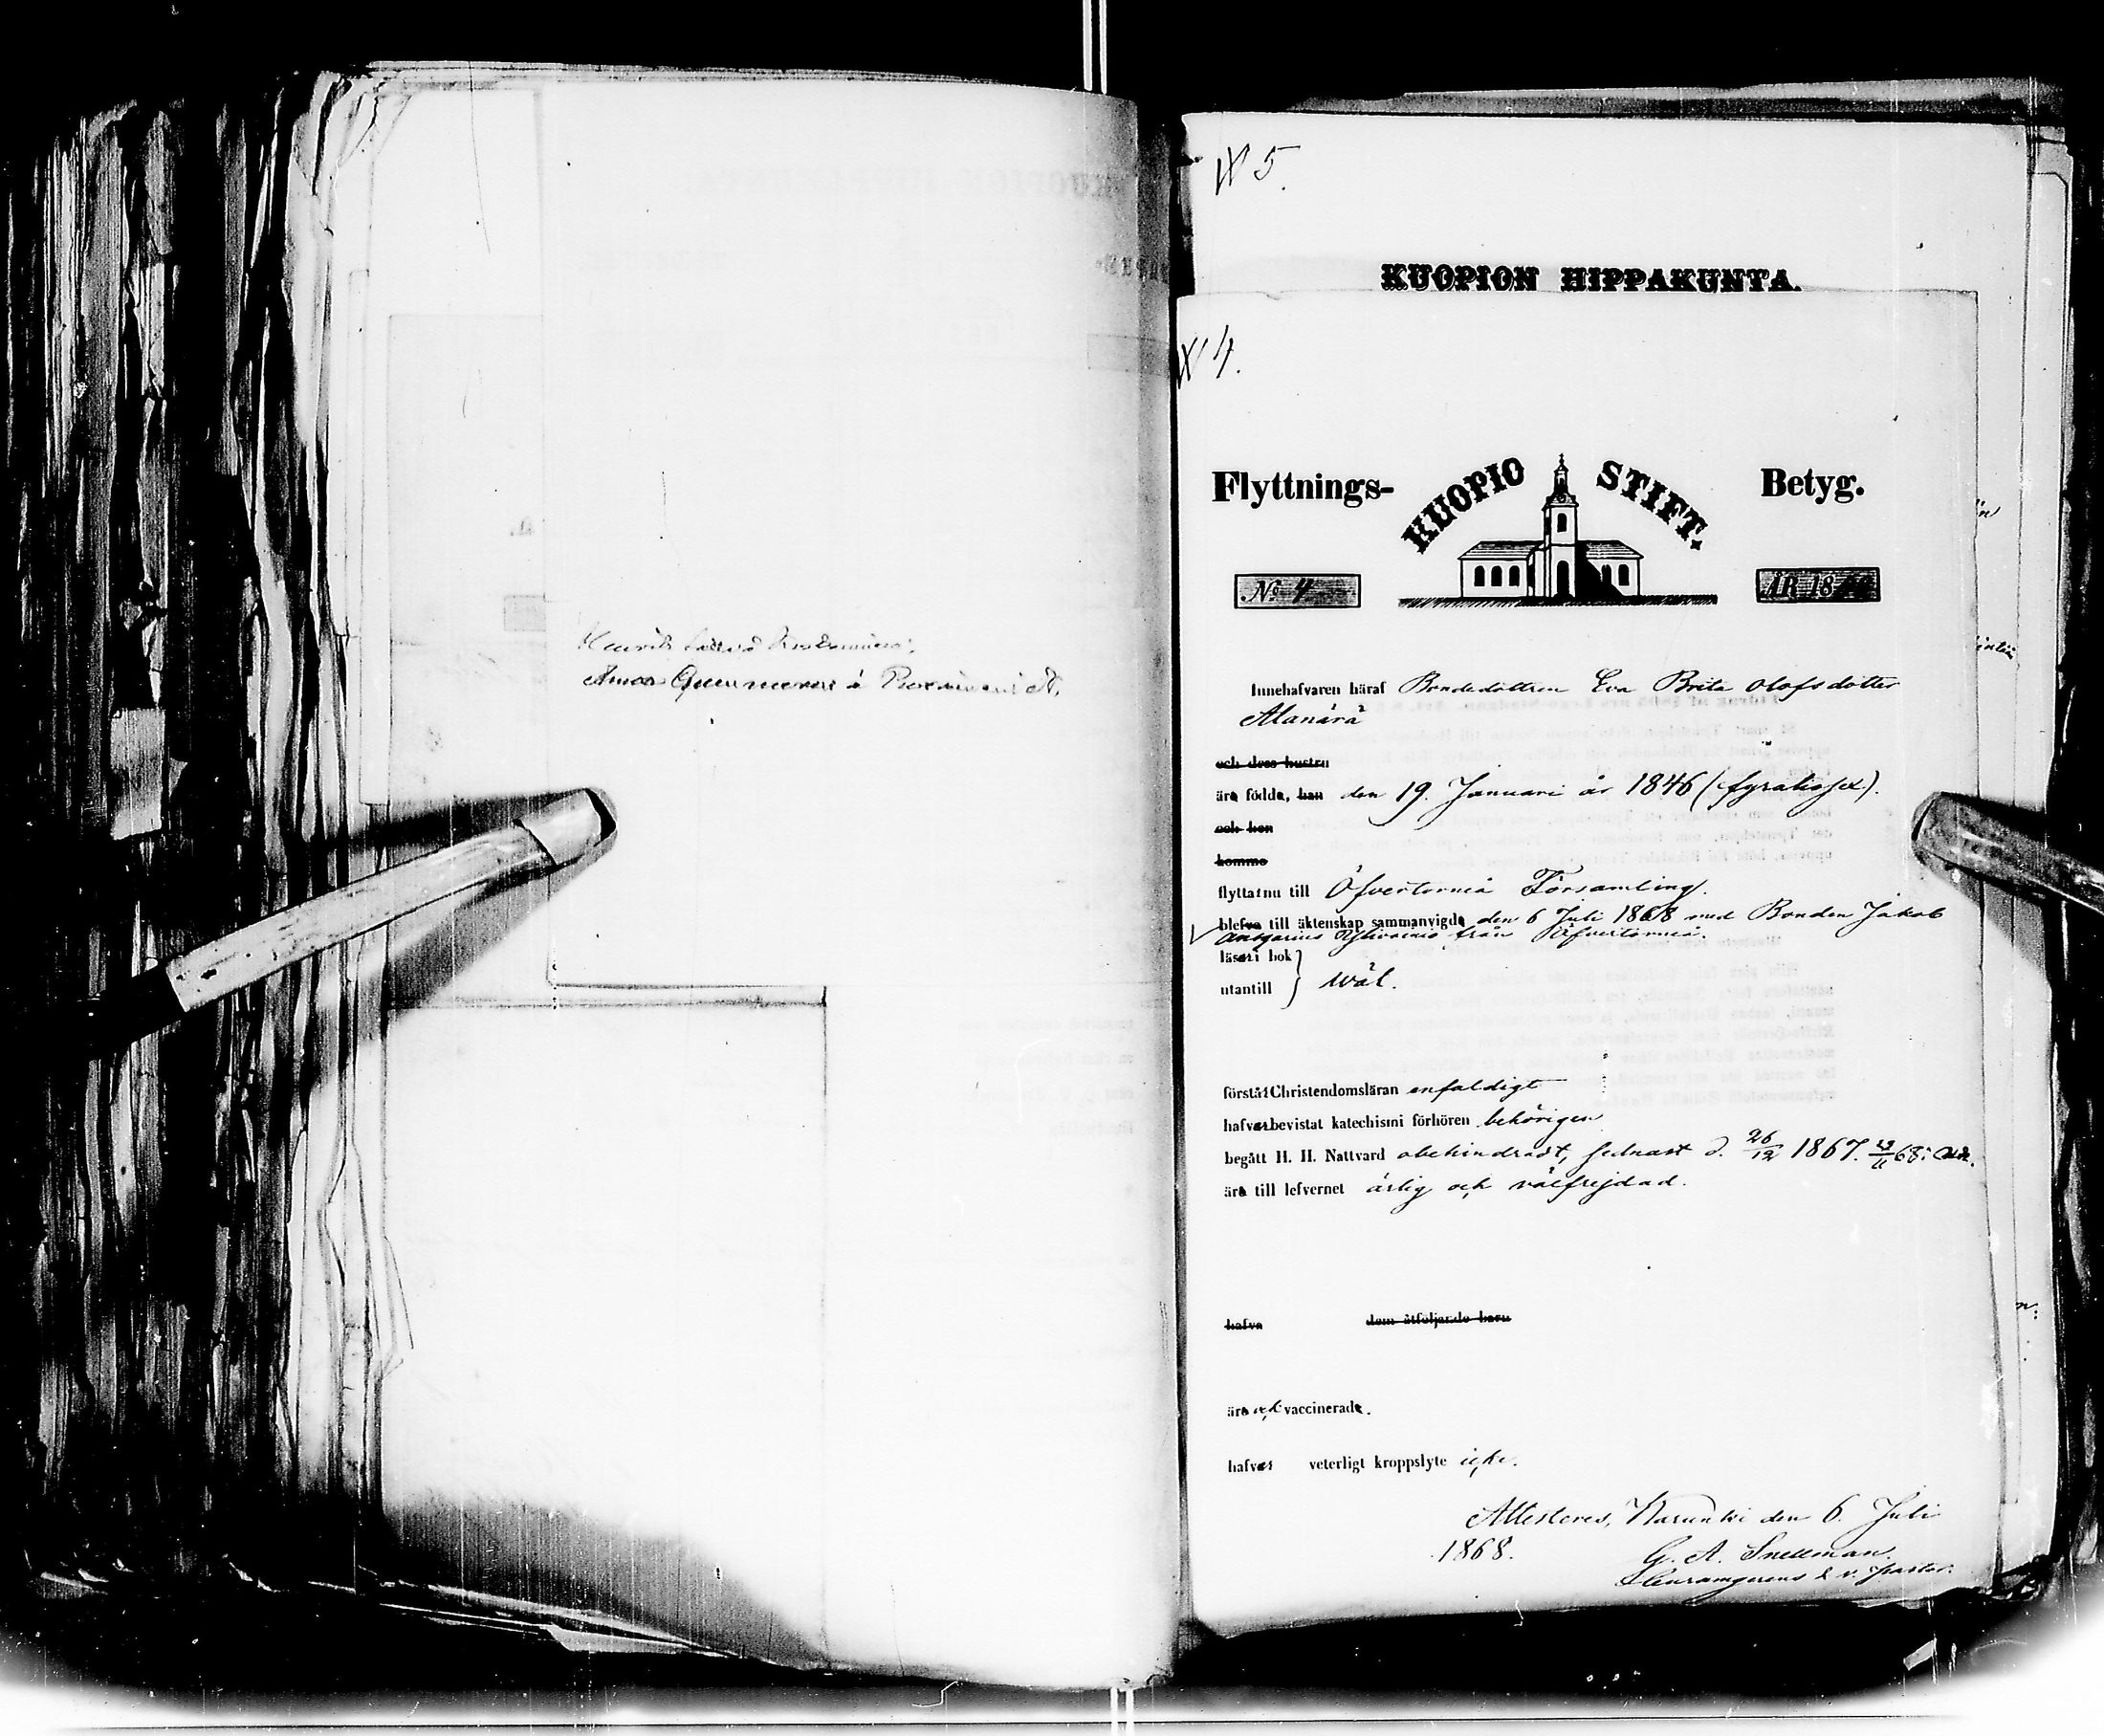 Anna Gunnineni à Rovaniemi N.
N 5.
KUOPION HIPPAKUNTA.
N 4.
Flyttnings- KUOPIO STIFT. Betyg.
No 4 ÅR 18
Innehafvaren häraf Bondedottren Eva Brita Olofsdotter
Alanärä
och dess hustru
äro födde, han den 19. Januari år 1846 (fyratiosex).
och hon
komne
flyttar nu till Öfvertorneå Församling.
blefvo till äktenskap sammanvigde den 6 Juli 1868 med Bonden Jakob
från Öfvertorneå.
läser i bok
utantill } wäl.
förstår Christendomsläran enfaldigt
hafver bevistat katechismi förhören behörigen
begått H. H. Nattvard obehindradt, sednast d. 26/12 1867.
äro till lefvernet ärlig och välfrejdad.
hafva dem åtföljande barn
äro ock vaccinerade.
hafver veterligt kroppslyte icke.
Attesteras, Karunki den 6. Juli
1868. G. A. Snellman.
v. pastor.